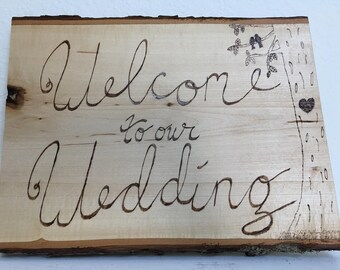 Welcome
to our
Wedding